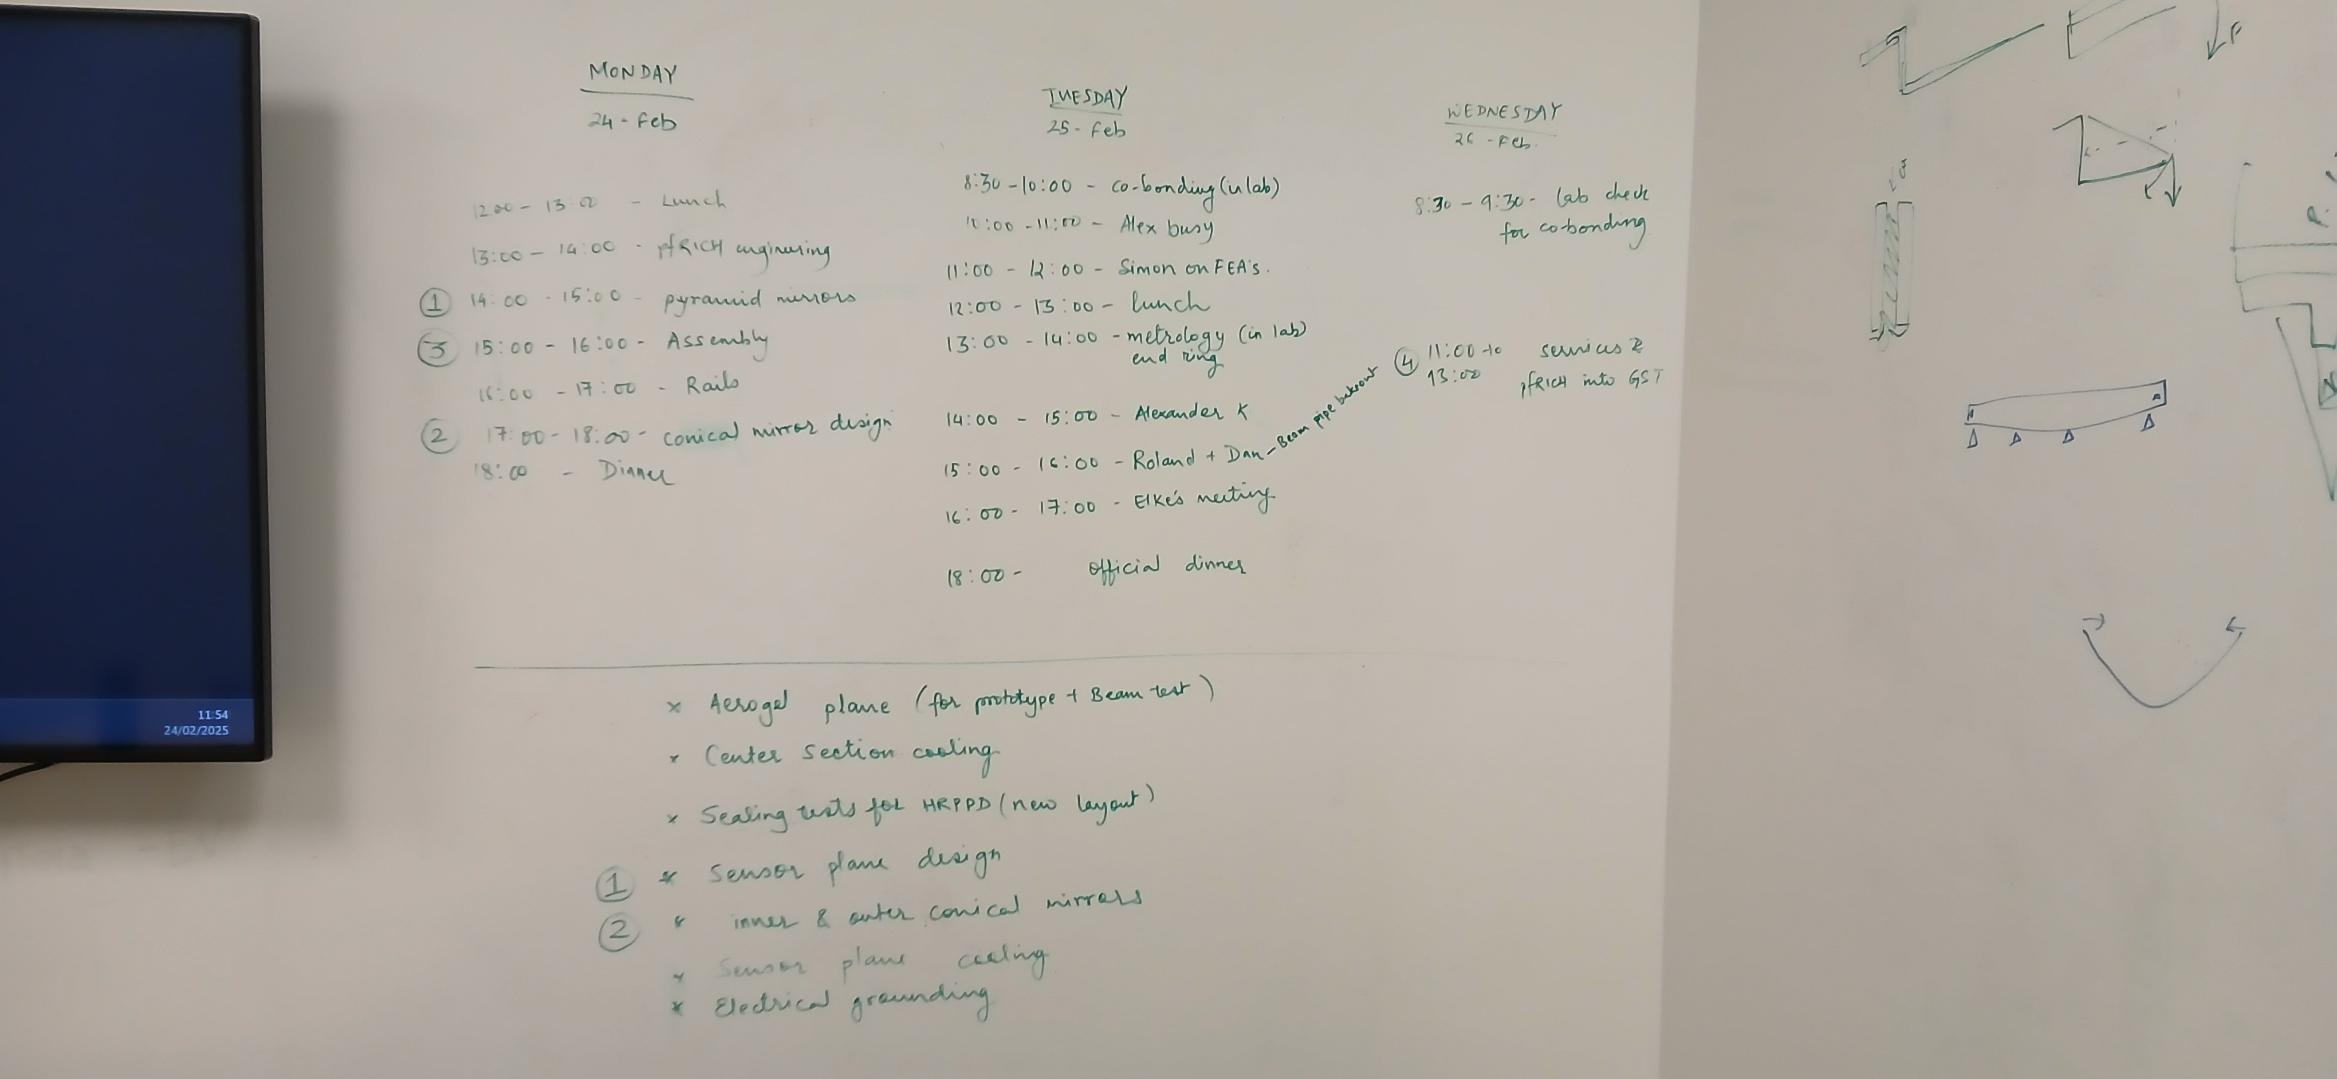 MONDAY
24 - Feb
1200 - 13 00 - Lunch
13:00 - 14:00 - pfRICH engineering
① 14:00 - 15:00 - pyramid mirrors
③ 15:00 - 16:00 - Assembly
16:00 - 17:00 - Rails
② 17:00 - 18:00 - conical mirror design
18:00 - Dinner
TUESDAY
25 - Feb
8:30 - 10:00 - co-bonding (in lab)
10:00 - 11:00 - Alex busy
11:00 - 12:00 - Simon on FEA's.
12:00 - 13:00 - lunch
13:00 - 14:00 - metrology (in lab)
end ring
14:00 - 15:00 - Alexander K
15:00 - 16:00 - Roland + Dan - Beam pipe bakeout
16:00 - 17:00 - Elke's meeting
18:00 - official dinner
WEDNESDAY
26 - Feb.
8:30 - 9:30 - lab check
for co-bonding
④ 11:00 to services &
13:00 pfRICH into GST
x Aerogel plane (for prototype + Beam test)
x Center section cooling
x Sealing tests for HRPPD (new layout)
① x Sensor plane design
② x inner & outer conical mirrors
x Sensor plane cooling
x Electrical grounding
11:54
24/02/2025
F